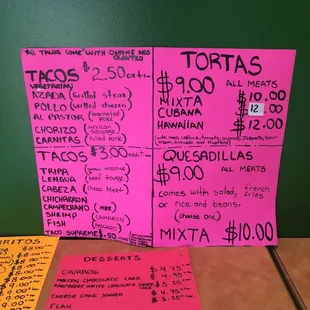 *All TACOS COME WITH ONIONS AND CILANTRO
TACOS $2.50 each
VEGETARIAN
AZADA (Grilled Steak)
POLLO (Grilled chicken)
AL PASTOR (Marinated PORK)
CHORIZO (Mexican Sausage)
CARNITAS (Pulled PORK)
TACOS $3.00 each
TRIPA (small intestine)
LENGUA (beef tongue)
CABEZA (cheek Meat)
CHICHARRON
CAMPECHANO (MIX)
SHRIMP (CAMARON)
FISH (PESCADO)
TACO SUPREME
TORTAS
$9.00 ALL MEATS
MIXTA $10.00
CUBANA $12.00
HAWAIIAN $12.00
QUESADILLAS
$9.00 ALL MEATS
comes with salad, french fries
or rice and beans.
(choose one)
MIXTA $10.00
DESSERTS
CHURROS $4.75
MOLTEN CHOCOLATE CAKE
RASPBERRY WHITE CHOCOLATE CHEESE CAKE
CHEESE CAKE
FLAN